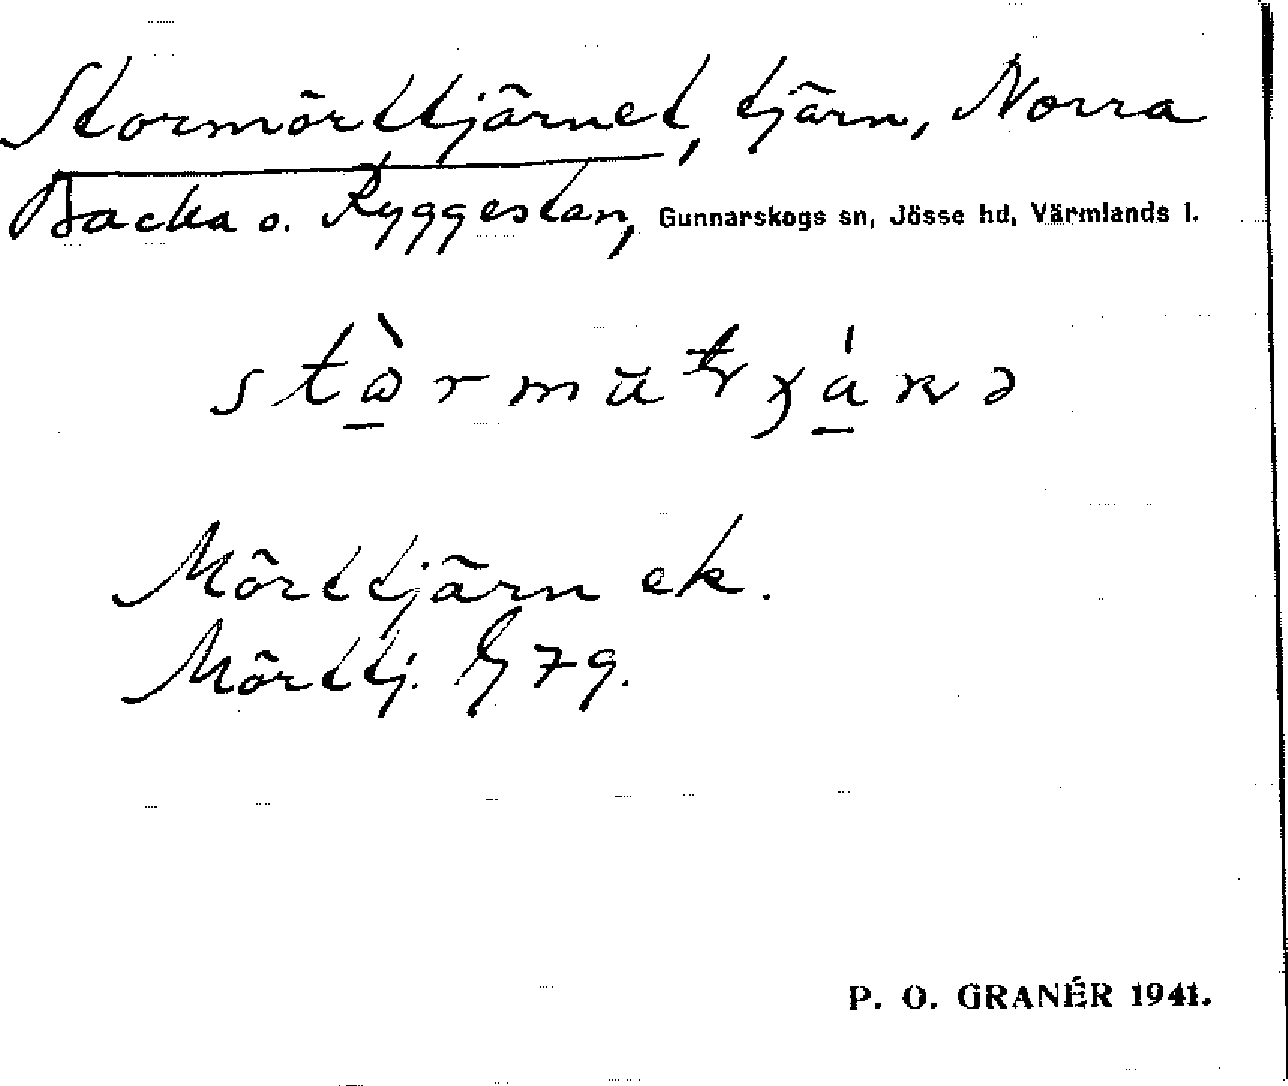 Stormörttjärnet, tjärn, Norra
Backa o. Ryggestan, Gunnarskogs sn, Jösse hd, Värmlands l.
Mörttjärn ek.
Mörttj. G 79.
P. O. GRANÉR 1941.